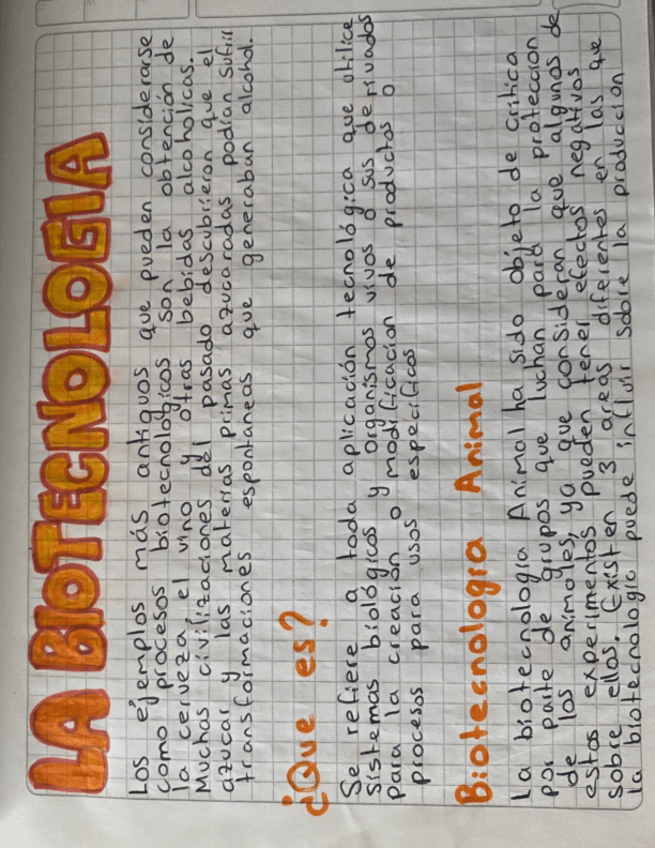 LA BIOTECNOLOGIA
Los ejemplos más antiguos que pueden considerarse
como procesos biotecnológicos son la obtención de
la cerveza, el vino y otras bebidas alcoholicas.
Muchas civilizaciones del pasado descubrieron que el
azucar y las materias primas azucaradas podían sufrir
transformaciones espontaneas que generaban alcohol.
¿Que es?
Se refiere a toda aplicación tecnológica que utilice
sistemas biológicos y organismos vivos o sus derivados
para la creación o modificacion de productos o
procesos para usos especificos
Biotecnologia Animal
La biotecnologia Animal ha sido objeto de critica
por parte de grupos que luchan para la proteccion
de los animales, ya que consideran que algunos de
estos experimentos pueden tener efectos negativos
sobre ellos. Existen 3 areas diferentes en las que
la biotecnologia puede influir sobre la produccion